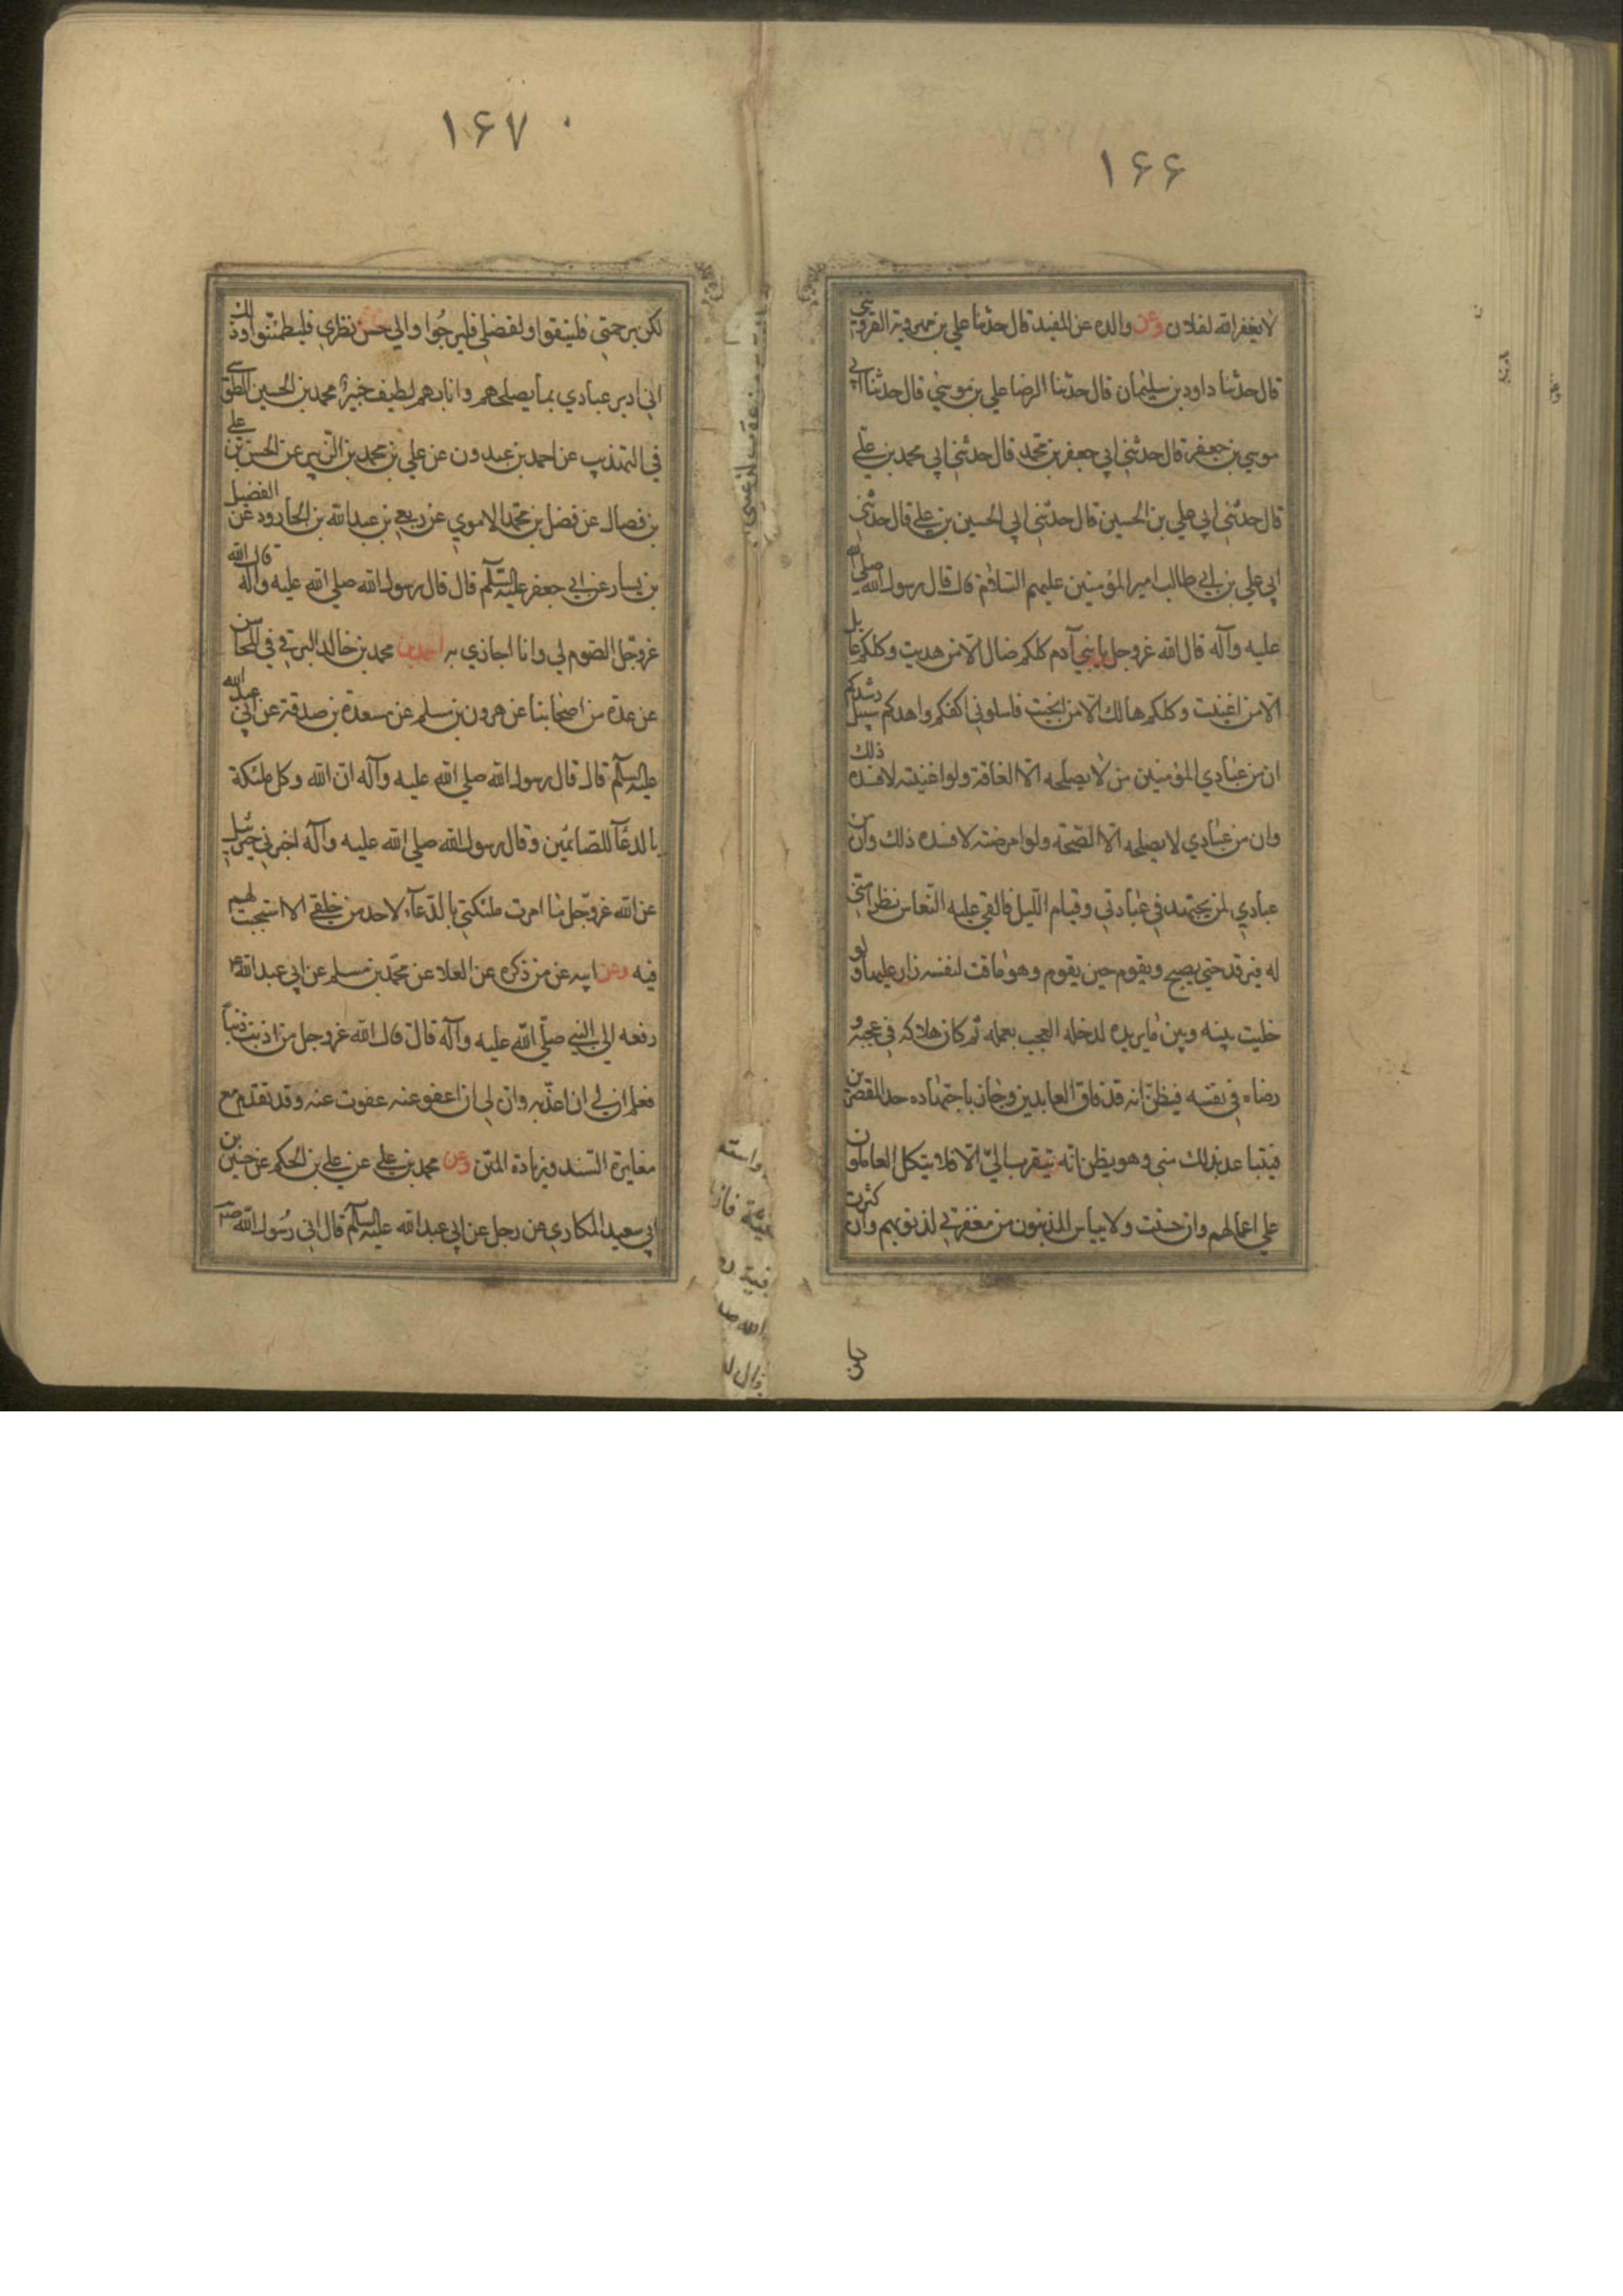 ۱۶۶
لا يغفر الله لفلان وعن والده عن المفيد قال حدثنا علي بن مهروية القزويني
قال حدثنا داود بن سليمان قال حدثنا الرضا علي بن موسي قال حدثنا ابي
موسي بن جعفر قال حدثني ابي جعفر بن محمد قال حدثني ابي محمد بن علي
قال حدثني ابي علي بن الحسين قال حدثني ابي الحسين بن علي قال حدثني
ابي علي بن ابي طالب امير المؤمنين عليهم السلام قال قال رسول الله صلي الله
عليه وآله قال الله عزوجل يا بني آدم كلكم ضال الا من هديت وكلكم عايل
الا من اغنيت وكلكم هالك الا من انجيت فاسلوني اكفكم واهدكم سبيل رشدكم
ان من عبادي المؤمنين من لا يصلحه الا الفاقة ولو اغنيته لافسده ذلك
وان من عبادي لا يصلحه الا الصحة ولو امرضته لافسده ذلك وان من
عبادي لمن يجتهد في عبادتي وقيام الليل فالقي عليه النعاس نظرا مني
له فيرقد حتي يصبح ويقوم حين يقوم وهو ماقت لنفسه زار عليها ولو
خليت بينه وبين ما يريده لدخله العجب بعمله ثم كان هلاكه في عجبه و
رضاه في نفسه فيظن انه قد فاق العابدين وجاز باجتهاده حد المقصرين
فيتباعد بذلك مني وهو يظن انه يتقرب الي الا فلا يتكل العاملون
علي اعمالهم وان حسنت ولا ييأس المذنبون من مغفرتي لذنوبهم وان كثرت
۱۶۷
لكن برحمتي فليثقوا ولفضلي فليرجوا والي حسن نظري فليطمئنوا وذلك
اني ادبر عبادي بما يصلحهم وانا بهم لطيف خبير محمد بن الحسين الطوسي
في التهذيب عن احمد بن عبدون عن علي بن محمد بن الزبير عن الحسن بن علي
بن فصال عن فضل بن محمد الاموي عن ربعي بن عبدالله بن الجارود عن الفضيل
بن يسار عن ابي جعفر عليه السلم قال قال رسول الله صلي الله عليه وآله قال الله
عزوجل الصوم لي وانا اجازي به احمد بن محمد بن خالد البرقي في المحاسن
عن عدة من اصحابنا عن هرون بن مسلم عن مسعدة بن صدقة عن ابي عبد الله
عليه السلم قال قال رسول الله صلي الله عليه وآله ان الله وكل ملئكة
بالدعآ للصائمين وقال رسول الله صلي الله عليه وآله اخبرني جبرئيل
عن الله عزوجل ما امرت ملئكتي بالدعآء لاحد من خلقي الا استجبت لهم
فيه وعن ابيه عن من ذكره عن العلا عن محمد بن مسلم عن ابي عبد الله
رفعه الي النبي صلي الله عليه وآله قال قال الله عزوجل من اذنب ذنبا
فعلم ان لي ان اعذبه وان لي ان اعفو عنه عفوت عنه وقد تقدم مع
مغايرة السند وزيادة المتن وعن محمد بن علي عن علي بن الحكم عن حسين بن
ابي سعيد المكاري عن رجل عن ابي عبدالله عليه السلم قال اتي رسول الله ص